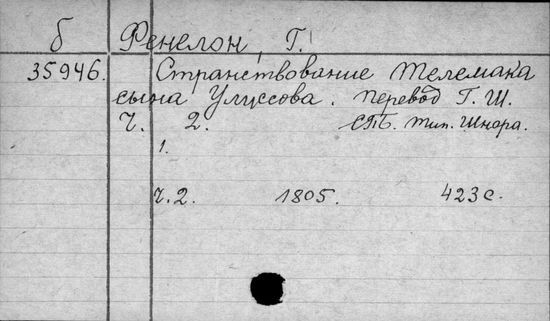 б Фенелон, Г.
35946. Странствование Телемака
сына Улиссова. Перевод Г. Ш.
Ч. 2. СПБ. Тип. Шнора.
1.
Ч. 2. 1805. 423 с.